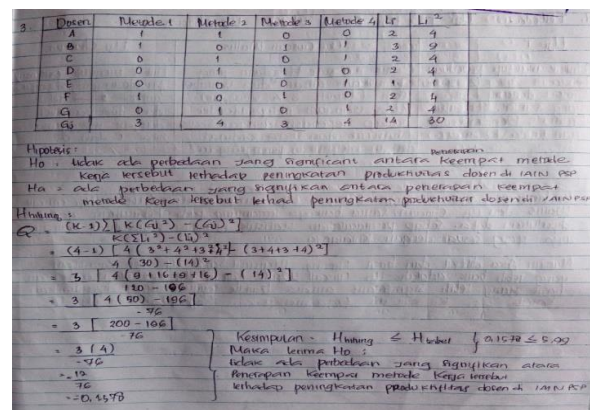 3. Dosen Metode 1 Metode 2 Metode 3 Metode 4 Li Li²
A 1 1 0 0 2 4
B 1 0 1 1 3 9
C 0 1 0 1 2 4
D 0 1 1 0 2 4
E 0 0 0 1 1 1
F 1 0 1 0 2 4
G 0 1 0 1 2 4
Gj 3 4 3 4 14 30
Hipotesis :
penerapan
Ho : tidak ada perbedaan yang significant antara keempat metode
kerja tersebut terhadap peningkatan produktivitas dosen di IAIN PSP
Ha = ada perbedaan yang signifikan antara penerapan keempat
metode kerja tersebut terhad peningkatan produktivitas dosen di IAIN PSP
Hhitung :
Q = (K-1) [K(Gj²) - (Gj)²]
K(ΣLi²) - (Li)²
= (4-1) [4(3²+4²+3²+4² - (3+4+3+4)²]
4(30) - (14)²
= 3 [4(9+16+9+16) - (14)²]
120 - 196
= 3 [4(50) - 196]
-76
= 3 [200 - 196]
-76
= 3(4)
-76
= -12
76
= -0,1578
Kesimpulan - Hhitung ≤ Htabel } 0,1578 ≤ 5,99
Maka terima Ho :
tidak ada perbedaan yang signifikan atara
Penerapan keempat metode kerja tersebut
terhadap peningkatan produktifitas dosen di IAIN PSP